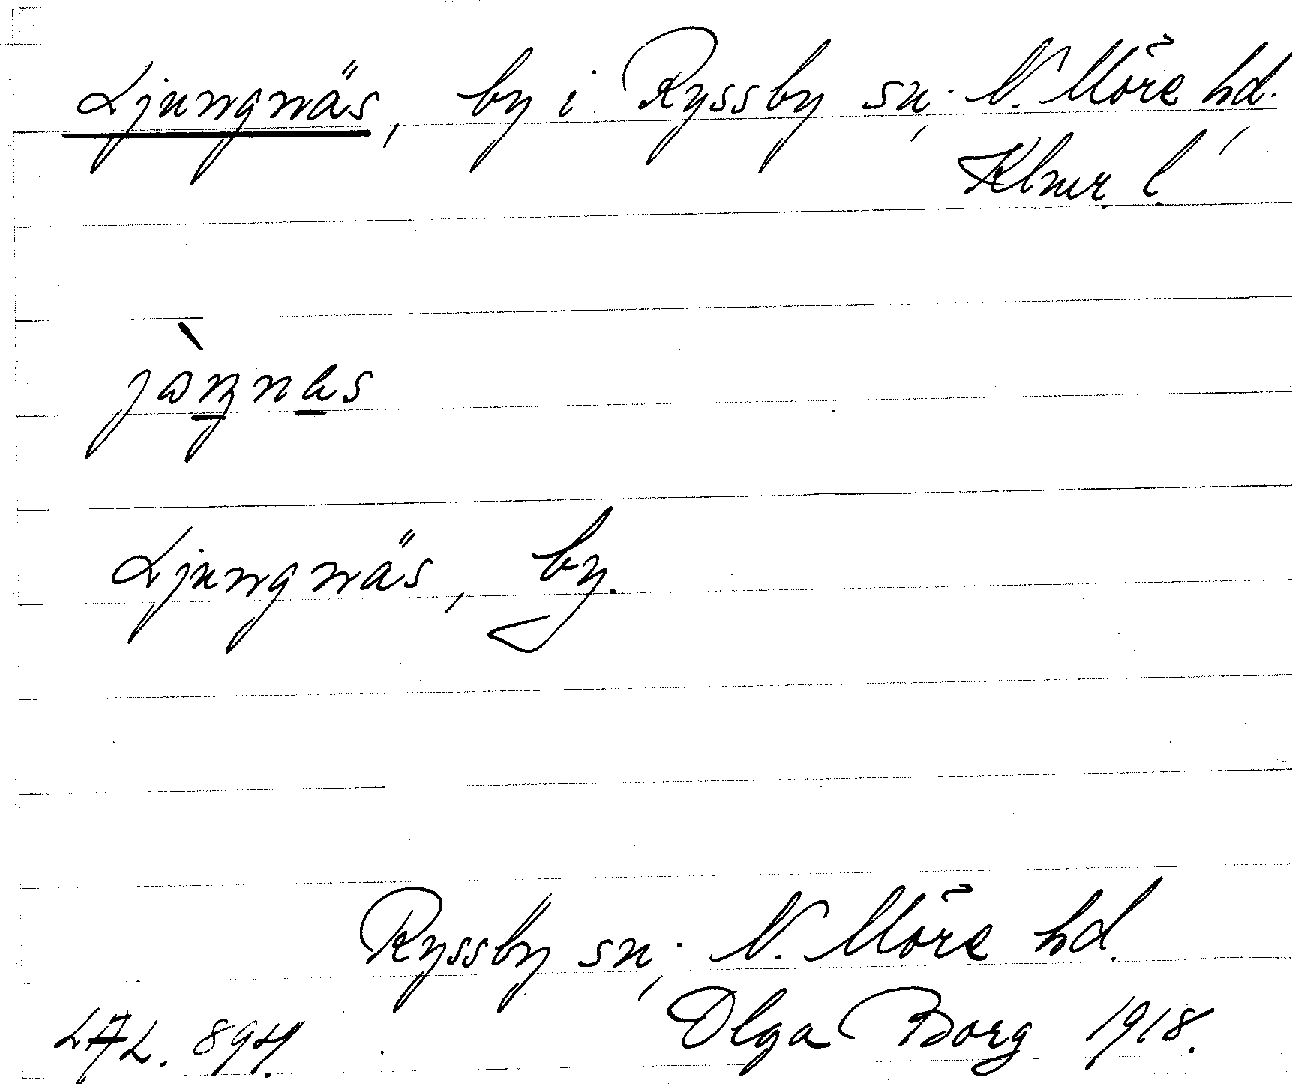 Ljungnäs, by i Ryssby sn; N. Möre hd.
Klmr. l.
Ljungnäs, by.
Ryssby sn; N. Möre hd.
Olga Borg 1918.